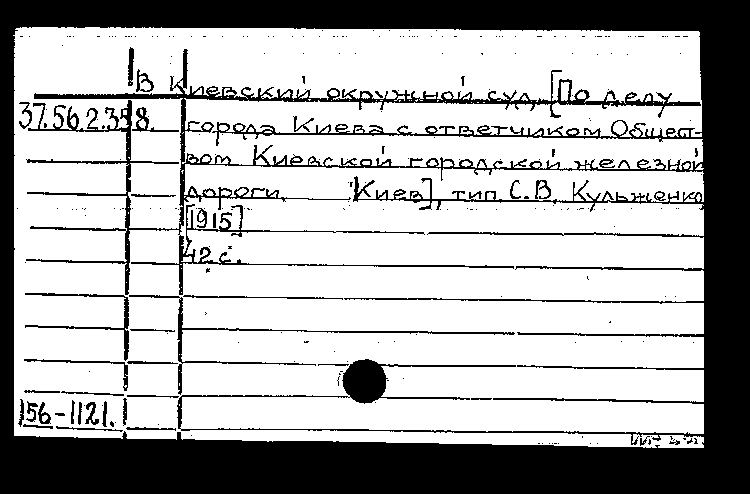 В Киевский окружной суд, [По делу
37.56.2.358. города Киева с ответчиком Общест-
вом Киевской городской железной
дороги. Киев], тип. С.В. Кульженко,
[1915]
42 с.
156-1121.